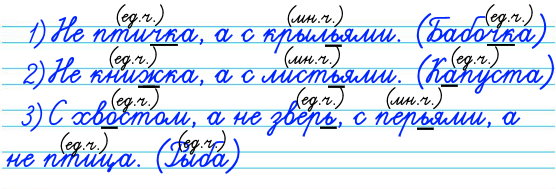 (ед.ч.) (мн.ч.) (ед.ч.)
1) Не птичка, а с крыльями. (Бабочка)
(ед.ч.) (мн.ч.) (ед.ч.)
2) Не книжка, а с листьями. (Капуста)
(ед.ч.) (ед.ч.) (мн.ч.)
3) С хвостом, а не зверь, с перьями, а
(ед.ч.) (ед.ч.)
не птица. (Рыба)